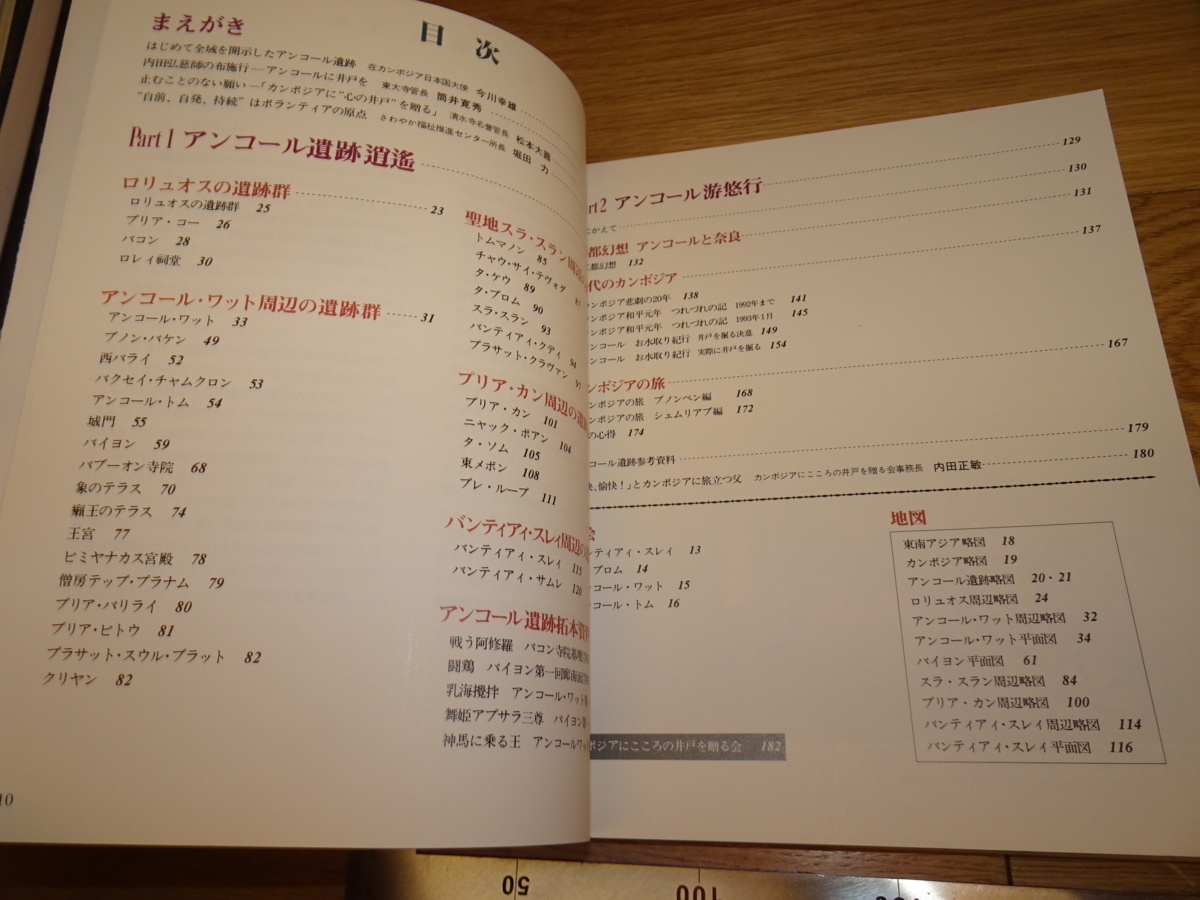 目 次
まえがき
はじめて全域を開示したアンコール遺跡 在カンボジア日本国大使 今川幸雄
内田弘慈師の布施行—アンコールに井戸を 東大寺管長 筒井寛秀
止むことのない願い—「カンボジアに“心の井戸”を贈る」 清水寺名誉管長 松本大圓
“自前、自発、持続”はボランティアの原点 さわやか福祉推進センター所長 堀田 力
Part 1 アンコール遺跡逍遙
ロリュオスの遺跡群 23
ロリュオスの遺跡群 25
プリア・コー 26
バコン 28
ロレイ祠堂 30
アンコール・ワット周辺の遺跡群 31
アンコール・ワット 33
プノン・バケン 49
西バライ 52
バクセイ・チャムクロン 53
アンコール・トム 54
城門 55
バイヨン 59
バプーオン寺院 68
象のテラス 70
癩王のテラス 74
王宮 77
ピミヤナカス宮殿 78
僧房テップ・プラナム 79
プリア・パリライ 80
プリア・ピトウ 81
プラサット・スウル・プラット 82
クリヤン 82
聖地スラ・スラン周辺
トムマノン 85
チャウ・サイ・テヴォダ 87
タ・ケウ 89
タ・プロム 90
スラ・スラン 93
バンティアイ・クディ 94
プラサット・クラヴァン 97
プリア・カン周辺の遺
プリア・カン 101
ニャック・ポアン 104
タ・ソム 105
東メボン 108
プレ・ループ 111
バンティアイ・スレイ周辺の
バンティアイ・スレイ 115
バンティアイ・サムレ 120
アンコール遺跡拓本資料
戦う阿修羅 バコン寺院基壇
闘鶏 バイヨン第一回廊南面
乳海攪拌 アンコール・ワット
舞姫アプサラ三尊 バイヨン
神馬に乗る王 アンコールワッ
10
rt2 アンコール游悠行 129
にかえて 130
都幻想 アンコールと奈良 131
都幻想 132
代のカンボジア 137
ンボジア悲劇の20年 138
ンボジア和平元年 つれづれの記 1992年まで 141
ンボジア和平元年 つれづれの記 1993年1月 145
ンコール お水取り紀行 井戸を掘る決意 149
ンコール お水取り紀行 実際に井戸を掘る 154
ンボジアの旅 167
ンボジアの旅 プノンペン編 168
ンボジアの旅 シェムリアプ編 172
の心得 174
コール遺跡参考資料 179
快、愉快！」とカンボジアに旅立つ父 カンボジアにこころの井戸を贈る会事務長 内田正敏 180
会
ンティアイ・スレイ 13
プロム 14
コール・ワット 15
コール・トム 16
ボジアにこころの井戸を贈る会 182
地図
東南アジア略図 18
カンボジア略図 19
アンコール遺跡略図 20・21
ロリュオス周辺略図 24
アンコール・ワット周辺略図 32
アンコール・ワット平面図 34
バイヨン平面図 61
スラ・スラン周辺略図 84
プリア・カン周辺略図 100
バンティアイ・スレイ周辺略図 114
バンティアイ・スレイ平面図 116
50
100